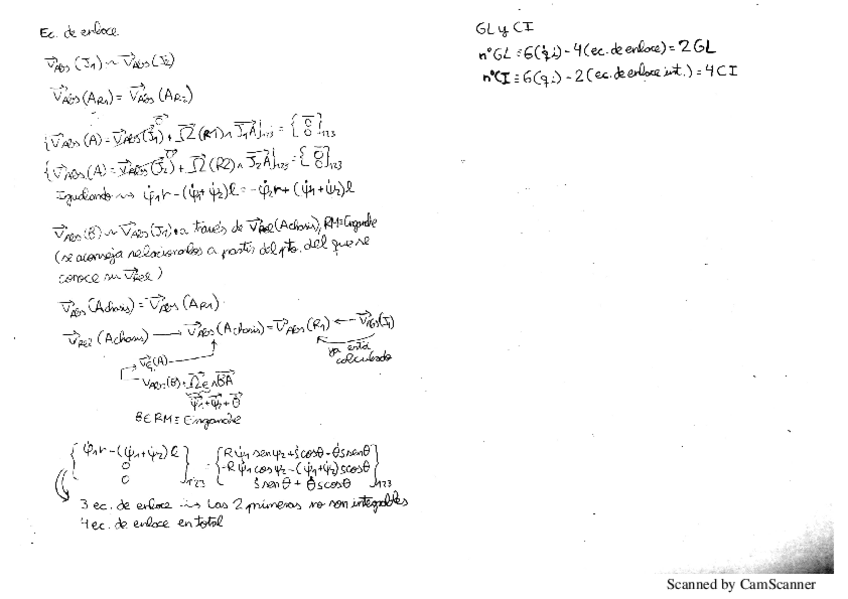 Ec. de enlace.
V_ABS(J1) ~ V_ABS(J2)
V_ABS(A_R1) = V_ABS(A_R2)
{V_ABS(A) = V_ABS(J1) + Ω(R1) ∧ J1A}123 = {0 0}123
{V_ABS(A) = V_ABS(J2) + Ω(R2) ∧ J2A}123 = {0 0}123
Igualando ~> φ̇1r - (ψ̇1+ψ̇2)l = -φ̇2r + (ψ̇1+ψ̇2)l
V_ABS(B) ~ V_ABS(J1) a través de V_REL(Achasis), RM≡Enganche
(se aconseja relacionarlos a partir del pto. del que se
conoce su V_REL)
V_ABS(Achasis) = V_ABS(A_R1)
V_REL(Achasis) → V_ABS(Achasis) = V_ABS(R1) ← V_ABS(J1)
ya está
calculada
V_ABS(B) + Ω ∧ BA
ψ̇1+ψ̇2+θ̇
B∈RM≡Enganche
{φ̇1r - (ψ̇1+ψ̇2)l 0 0}123 = {Rψ̇1 senψ2 + ṡcosθ - θ̇s senθ
-Rψ̇1 cosψ2 - (ψ̇1+ψ̇2)scosθ
ṡ senθ + θ̇scosθ}123
3 ec. de enlace ~> Las 2 primeras no son integrables
4 ec. de enlace en total
GL y CI
nº GL ≡ 6(q̇i) - 4(ec. de enlace) = 2 GL
nº CI ≡ 6(qi) - 2(ec. de enlace int.) = 4 CI
Scanned by CamScanner